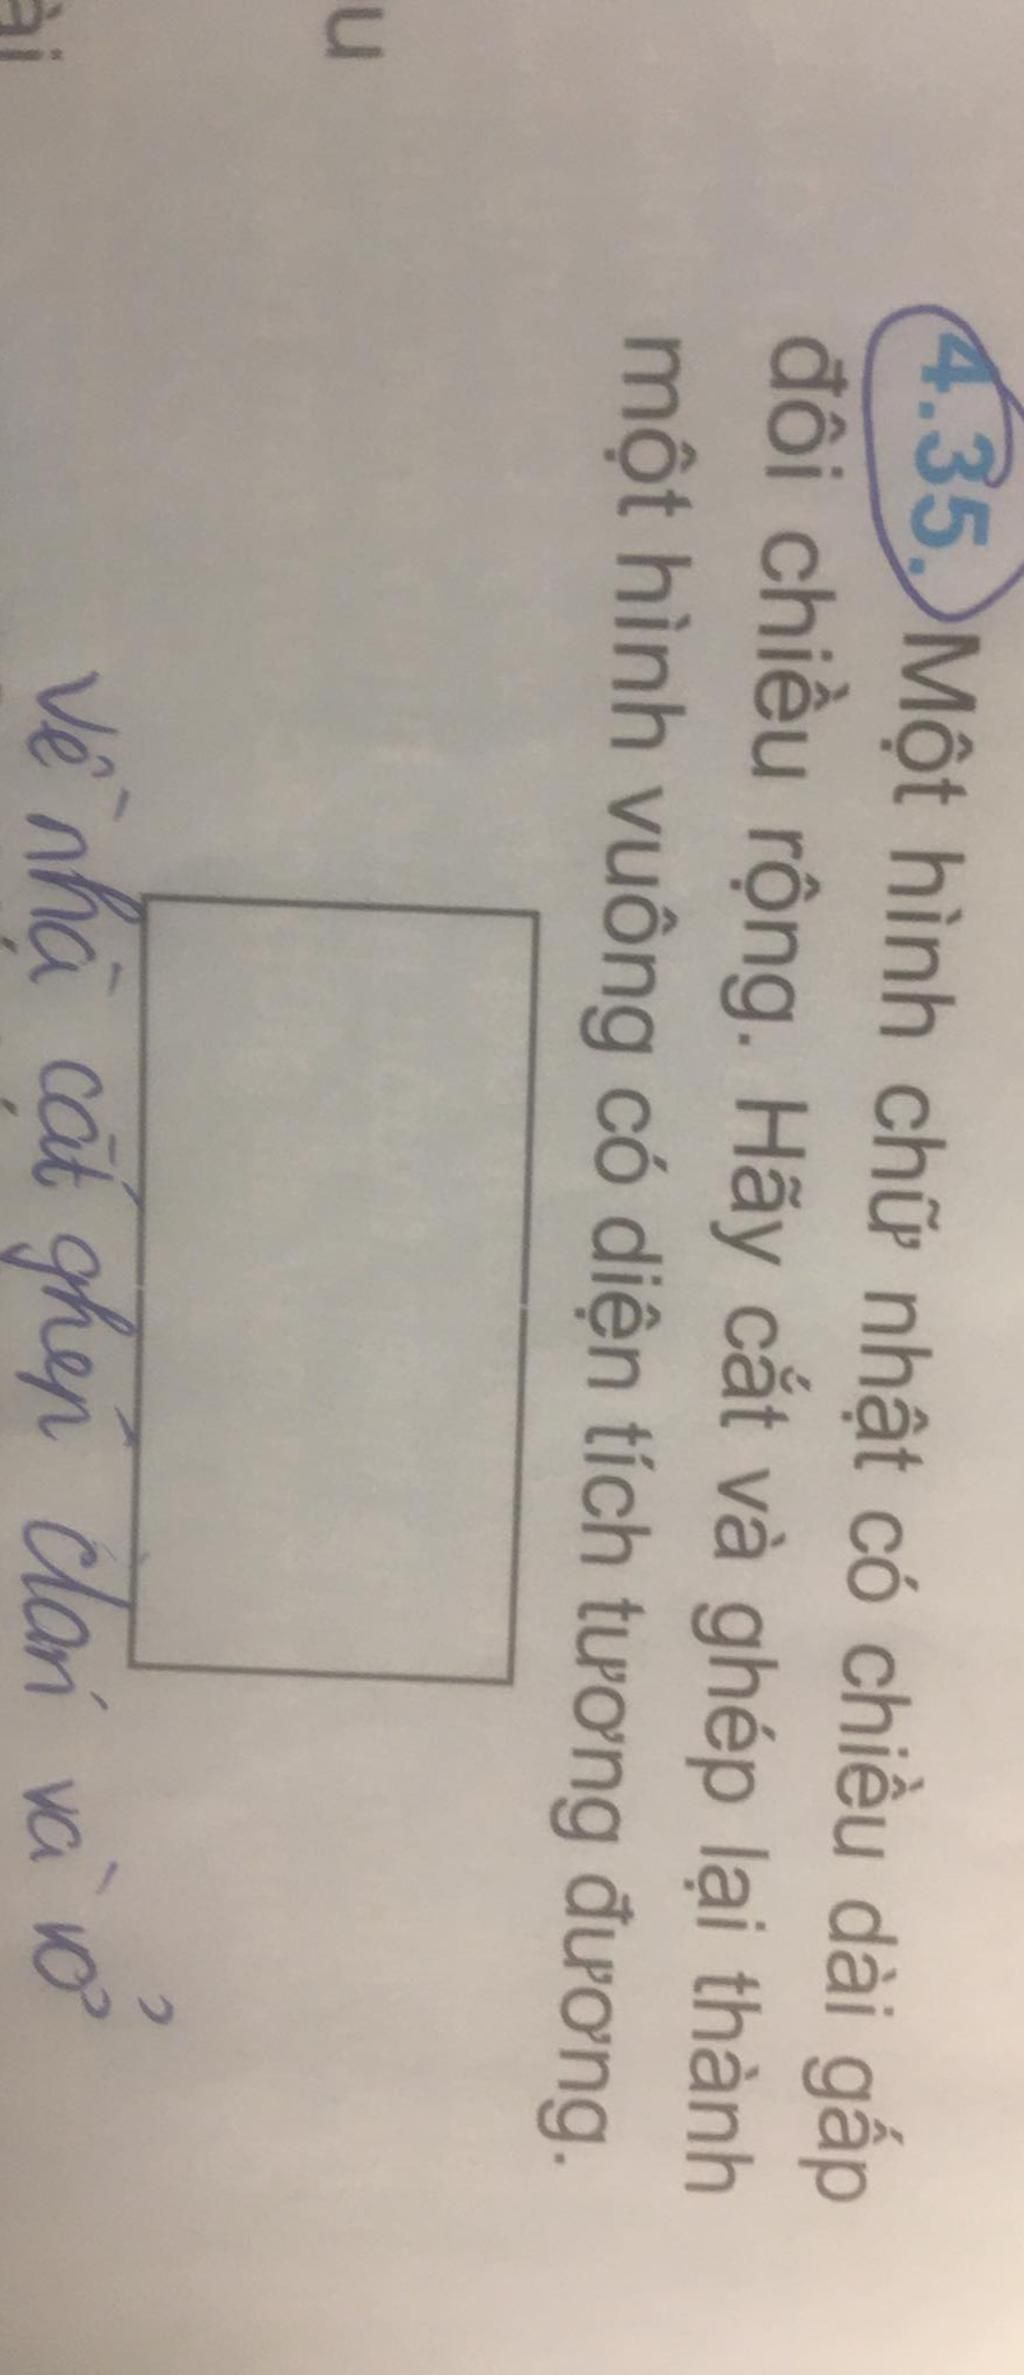 4.35. Một hình chữ nhật có chiều dài gấp
đôi chiều rộng. Hãy cắt và ghép lại thành
một hình vuông có diện tích tương đương.
u
ài
Về nhà cắt ghép dán và vở